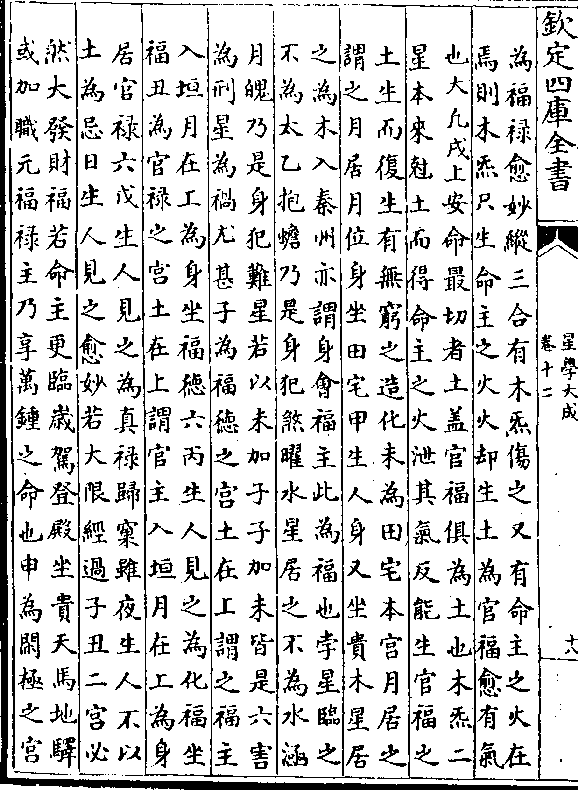 欽定四庫全書
星學大成
卷十二
十八
為福禄愈妙縱三合有木炁傷之又有命主之火在
焉則木炁只生命主之火火却生土為官福愈有氣
也大凡戌上安命最切者土盖官福俱為土也木炁二
星本來尅土而得命主之火泄其氣反能生官福之
土生而復生有無窮之造化未為田宅本宫月居之
謂之月居月位身坐田宅甲生人身又坐貴木星居
之為木入秦州亦謂身會福主此為福也孛星臨之
不為太乙抱蟾乃是身犯煞曜水星居之不為水涵
月魄乃是身犯難星若以未加子子加未皆是六害
為刑星為禍尤甚子為福徳之宫土在上謂之福主
入垣月在工為身坐福徳六丙生人見之為化福坐
福丑為官禄之宫土在上謂官主入垣月在工為身
居官禄六戊生人見之為真禄歸窠雖夜生人不以
土為忌日生人見之愈妙若大限經過子丑二宫必
然大發財福若命主更臨歳駕登殿坐貴天馬地驛
或加職元福禄主乃享萬鍾之命也申為閑極之宫